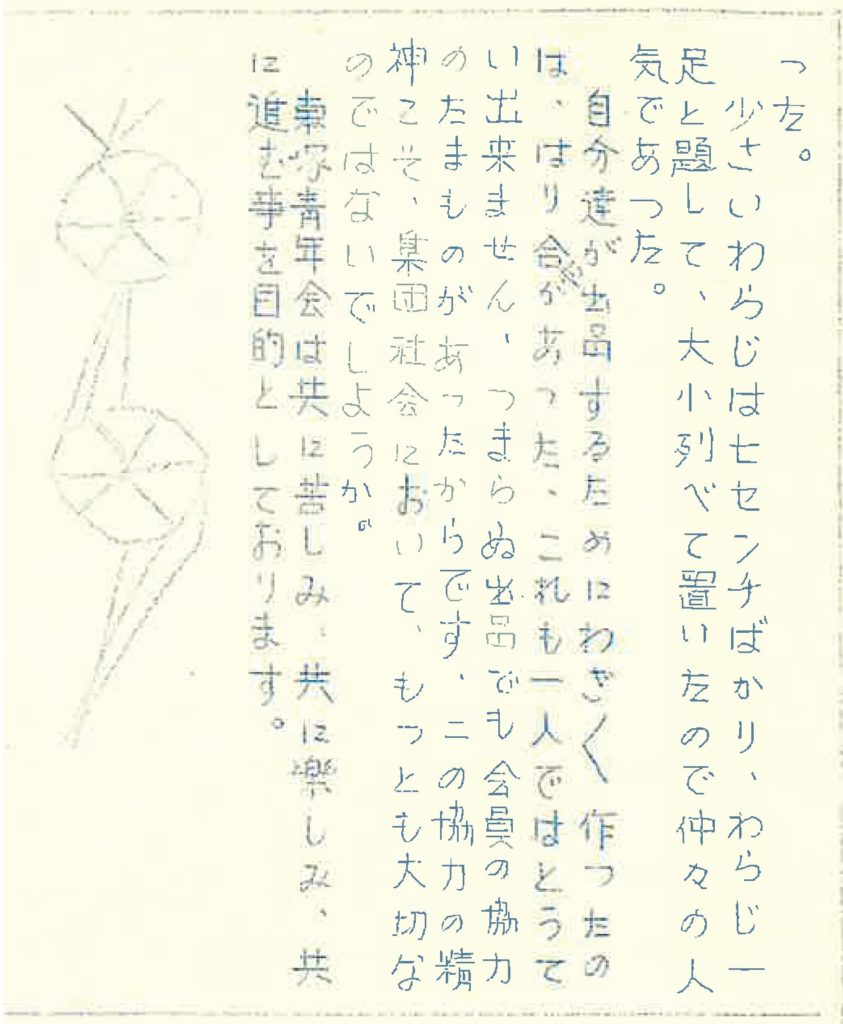 った。
少さいわらじは七センチばかり、わらじ一
足と題して、大小列べて置いたので仲々の人
気であった。
自分達が出品するためにわざ〱作ったの
は、はり合があった、これも一人ではとうて
い出来ません、つまらぬ出品でも会員の協力
のたまものがあったからです、この協力の精
神こそ、集団社会において、もっとも大切な
のではないでしようか。
東塚青年会は共に苦しみ、共に楽しみ、共
に進む事を目的としております。